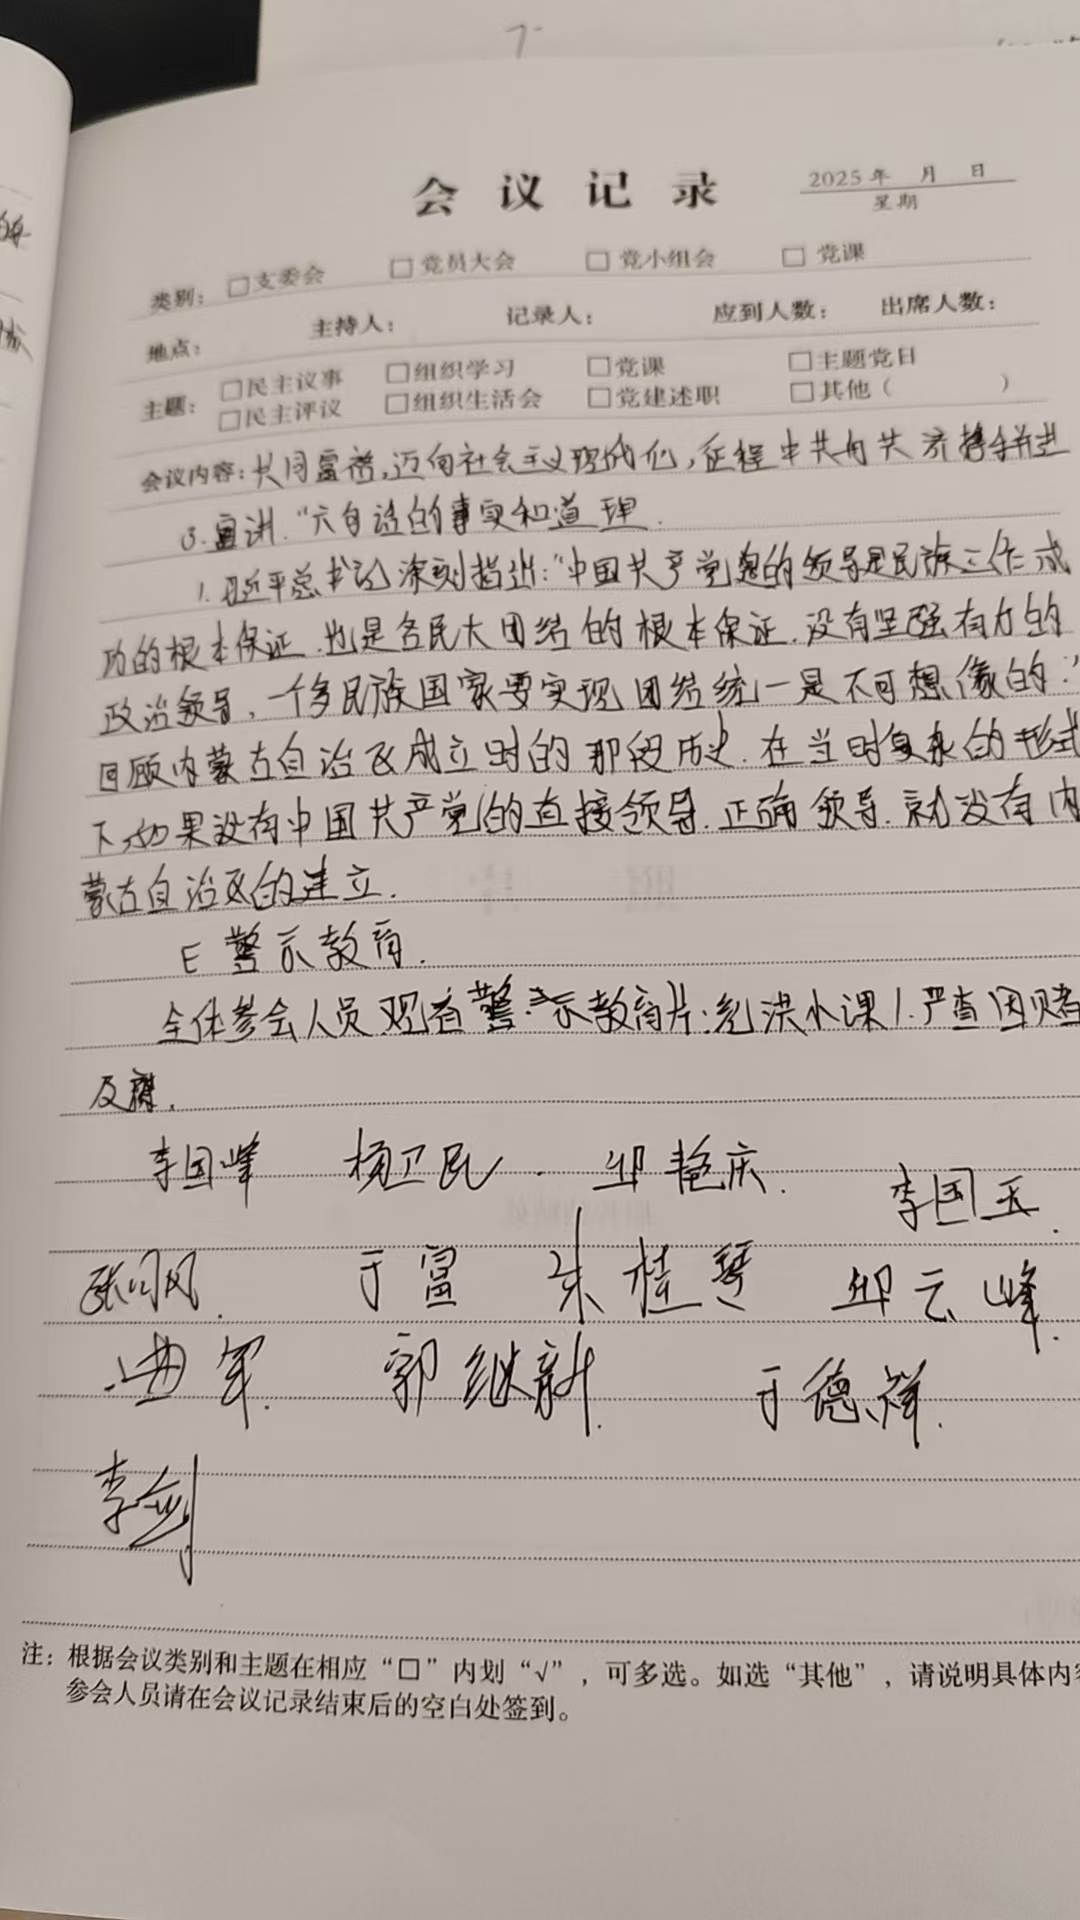 会议记录
2025 年 月 日
星期
类别： □支委会 □党员大会 □党小组会 □党课
地点： 主持人： 记录人： 应到人数： 出席人数：
主题： □民主议事 □组织学习 □党课 □主题党日
□民主评议 □组织生活会 □党建述职 □其他（ ）
会议内容：共同富裕,迈向社会主义现代化,征程中共同共济携手并进
3.宣讲.“六句话的事实和道理.
1.习近平总书记深刻指出:“中国共产党的领导是民族工作成
功的根本保证.也是各民大团结的根本保证.没有坚强有力的
政治领导,一个多民族国家要实现团结统一是不可想像的.”
回顾内蒙古自治区成立时的那段历史.在当时复杂的形式
下,如果没有中国共产党的直接领导.正确领导.就没有内
蒙古自治区的建立.
E 警示教育.
全体参会人员观看警示教育片:纪洪小课1.严查因赌
及腐.
李国峰 杨卫民. 邱艳庆. 李国玉.
于富 朱桂琴 邱云峰.
曲军. 郭继新. 于德祥.
李剑
注：根据会议类别和主题在相应“□”内划“√”，可多选。如选“其他”，请说明具体内容
参会人员请在会议记录结束后的空白处签到。